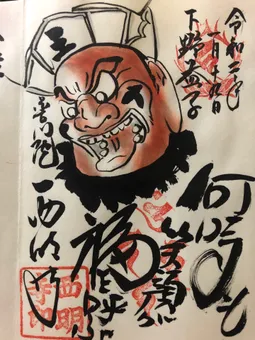 令和二年
一月十九日
下野益子
何ごとも
笑顔が
福を呼ぶ
普門院 西明寺
西明寺印